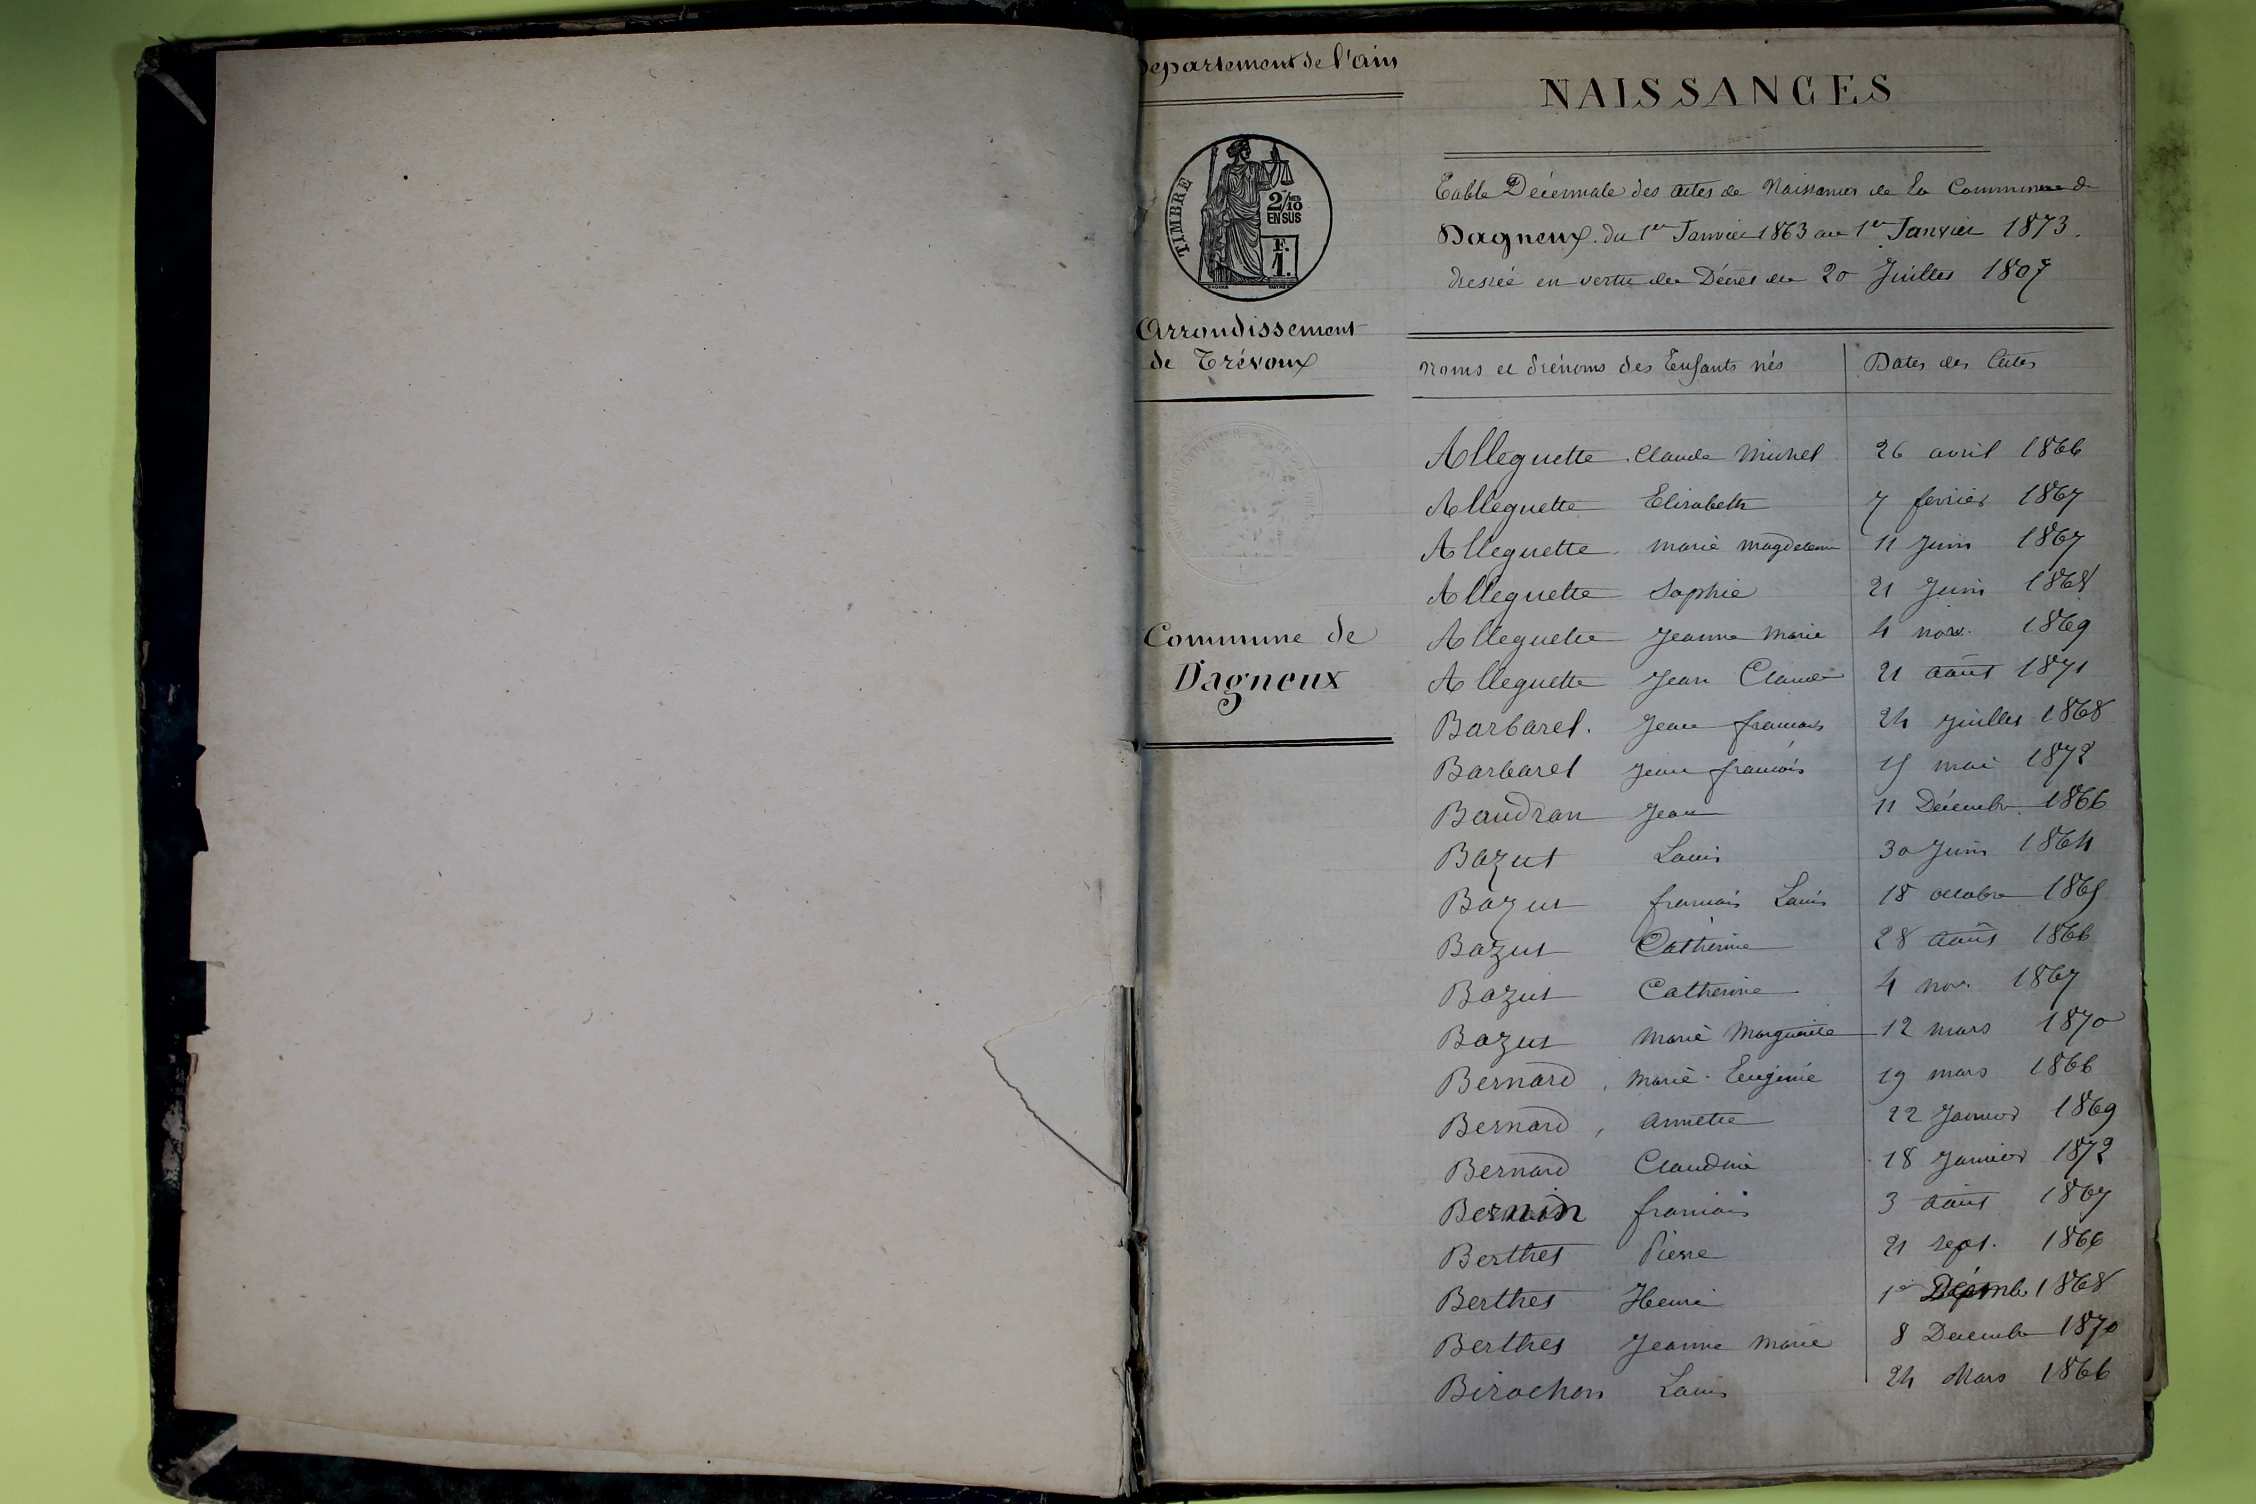 Département de l'ain
TIMBRE
2/10
EN SUS
F.
1.
Arrondissement
de Trévoux
Commune de
Dagneux
NAISSANCES
Table Décennale des actes de Naissances de la Commune de
Dagneux. du 1er Janvier 1863 au 1er Janvier 1873.
dressée en vertu du Décret du 20 Juillet 1807
Noms et Prénoms des Enfants nés Dates des Actes
Alleguette Claude Michel 26 avril 1866
Alleguette Elisabeth 7 février 1867
Alleguette marie magdeleine 11 Juin 1867
Alleguette Sophie 21 Juin 1868
Alleguette Jeanne Marie 4 nov. 1869
Alleguette Jean Claude 21 août 1871
Barbaret. Jean francois 24 Juillet 1868
Barbaret Jean francois 15 mai 1872
Baudran Jean 11 Décembre 1866
Bazut Louis 30 Juin 1864
Bazut francois Louis 18 octobre 1865
Bazut Catherine 28 août 1866
Bazut Catherine 4 nov. 1867
Bazut Marie Marguerite 12 mars 1870
Bernard, Marie Eugénie 19 mars 1866
Bernard, annette 22 Janvier 1869
Bernard Claudine 18 Janvier 1872
Bernin francois 3 août 1867
Berthet Pierre 21 sept. 1866
Berthet Henri 1er 1868
Berthet Jeanne Marie 8 Decembre 1870
Birochon Louis 24 Mars 1866